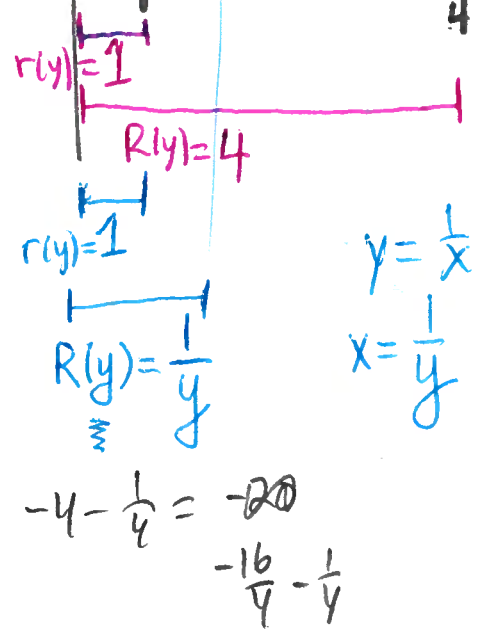 4
r(y)=1
R(y)=4
r(y)=1
y=1/x
R(y)=1/y
x=1/y
-4-1/4=
-16/4-1/4